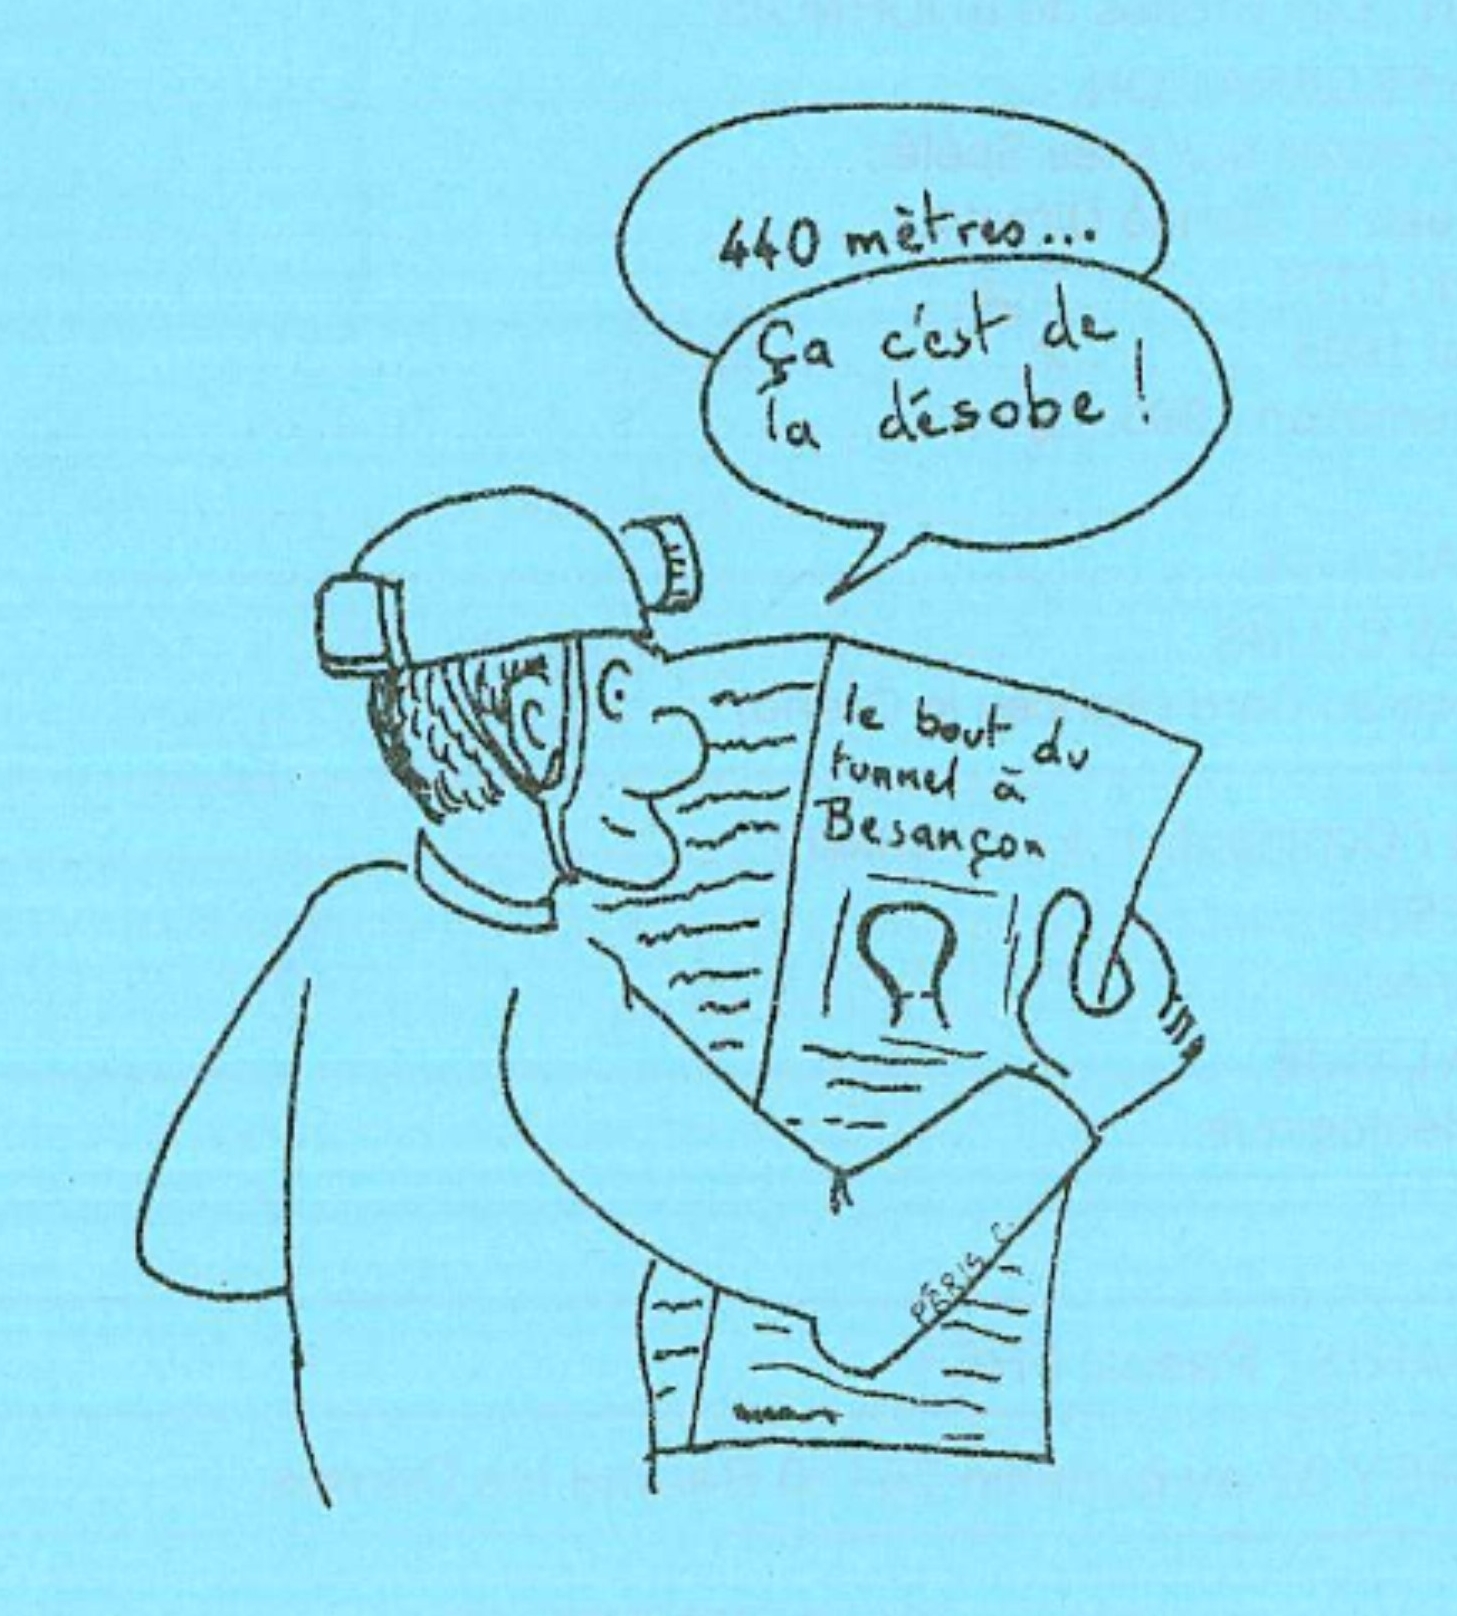 440 mètres...
Ça c'est de
la désobe !
le bout du
tunnel à
Besançon
PARIS C.